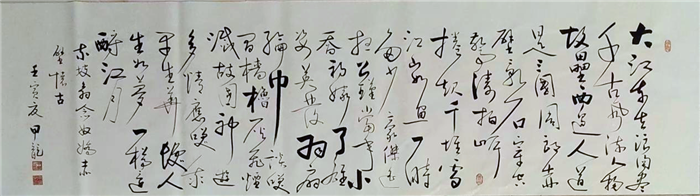 大江东去浪淘尽
千古风流人物
故垒西边人道
是三国周郎赤
壁乱石穿空
惊涛拍岸
捲起千堆雪
江山如画一时
多少豪杰遥
想公瑾当年小
乔初嫁了雄
姿英发羽扇
纶巾谈笑
间樯橹灰飞烟
灭故国神游
多情应笑我
早生华发人
生如梦一樽还
酹江月
东坡翁念奴娇赤
壁怀古
壬寅夏甲龙